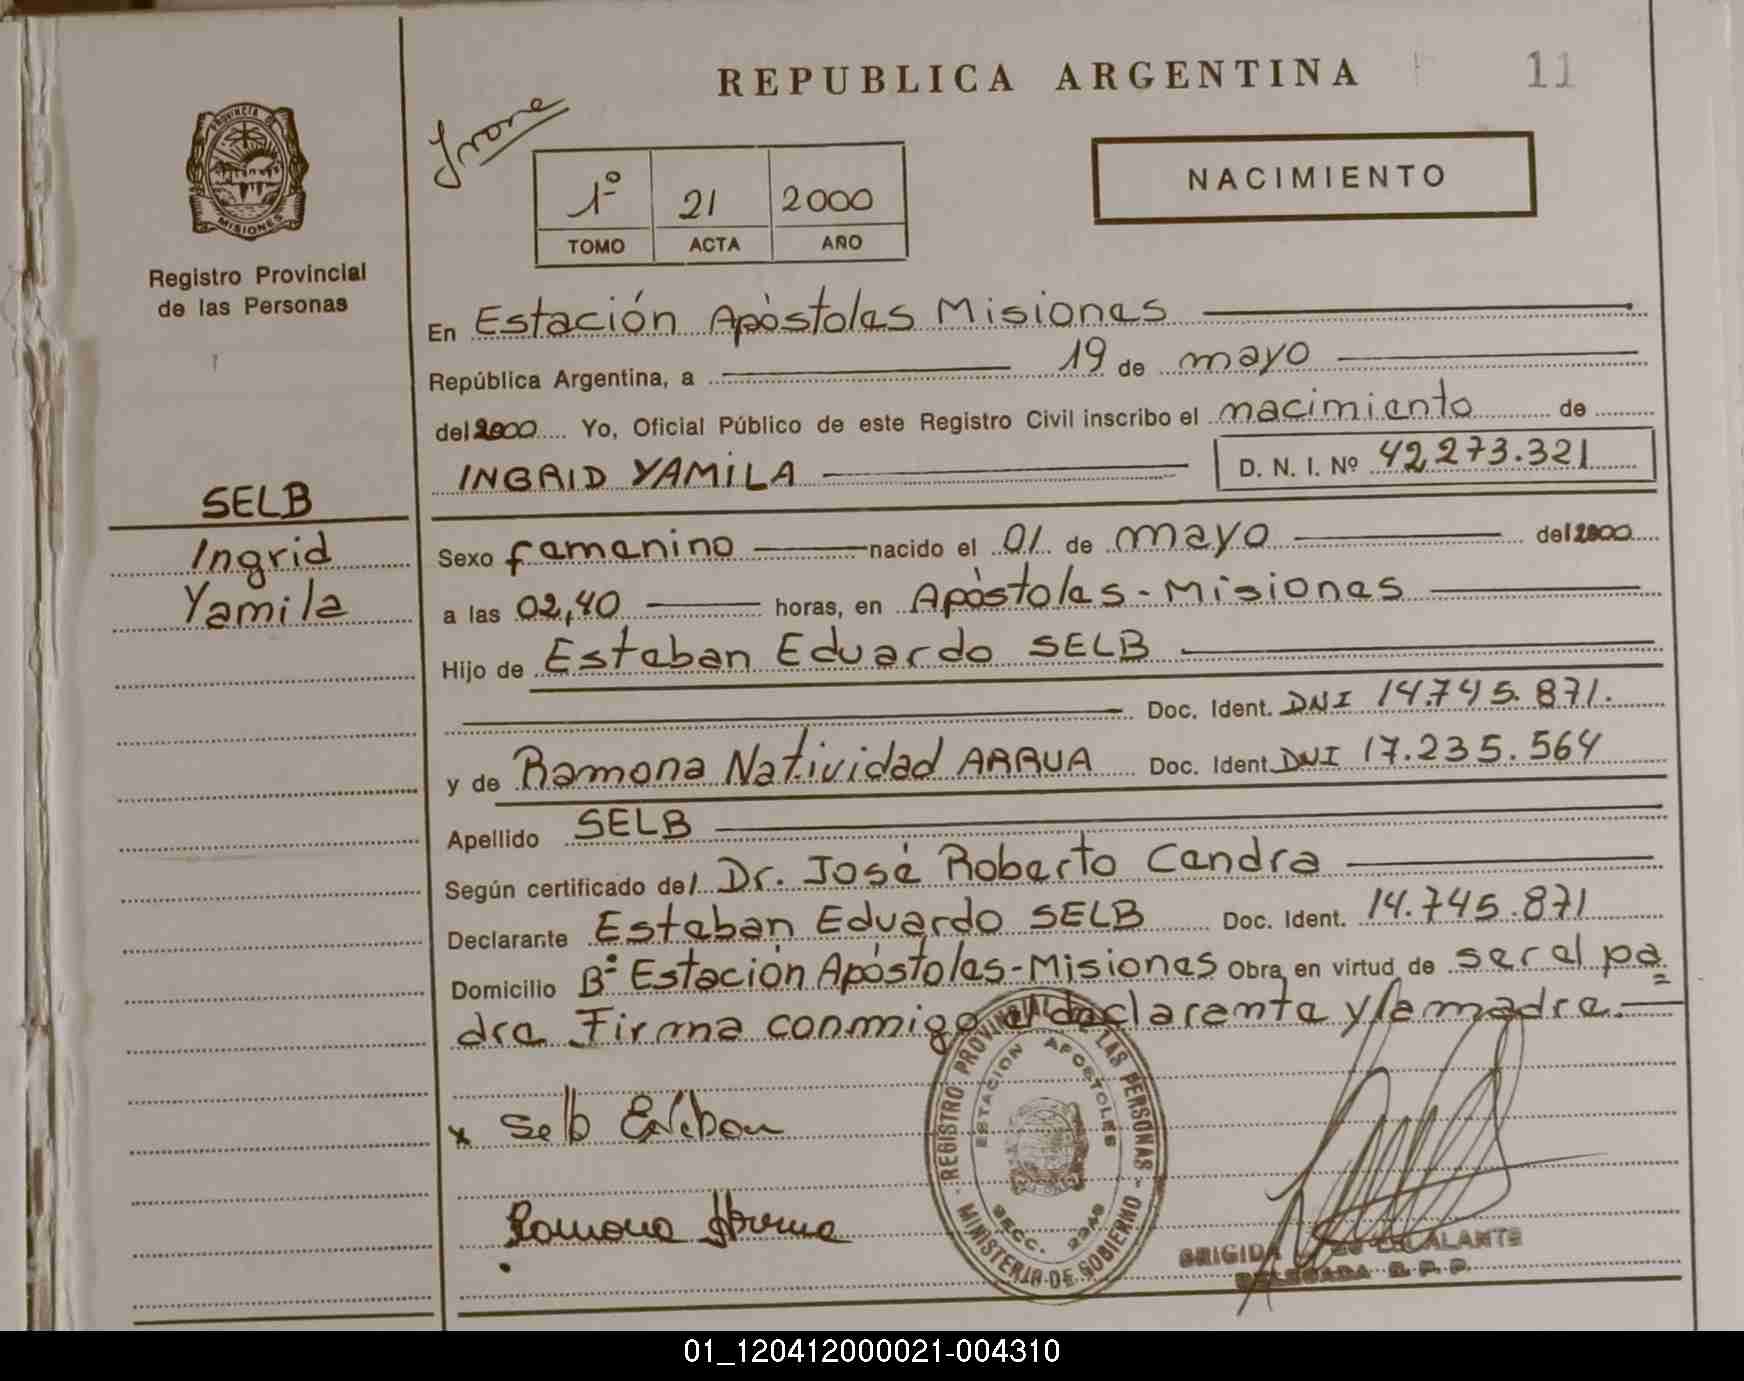 REPUBLICA ARGENTINA
11
Ivone
NACIMIENTO
1º 21 2000
TOMO ACTA AÑO
PROVINCIA DE
MISIONES
Registro Provincial
de las Personas
En Estación Apóstoles Misiones
República Argentina, a 19 de mayo
del 2000 Yo, Oficial Público de este Registro Civil inscribo el nacimiento de
INGRID YAMILA D. N. I. Nº 42,273.321
SELB
Ingrid
Yamila
Sexo femenino nacido el 01 de mayo del 2000
a las 02,40 horas, en Apóstoles - Misiones
Hijo de Esteban Eduardo SELB
Doc. Ident. DNI 14.745.871.
y de Ramona Natividad ARRUA Doc. Ident. DNI 17.235.564
Apellido SELB
Según certificado del Dr. José Roberto Cendra
Declarante Esteban Eduardo SELB Doc. Ident. 14.745.871
Domicilio Bº Estación Apóstoles-Misiones Obra en virtud de ser el pa
dre Firma conmigo el declarente y la madre.
x Selb Esteban
Ramona Arrua
REGISTRO PROVINCIAL DE LAS PERSONAS
MINISTERIO DE GOBIERNO
ESTACION APOSTOLES
SECC.
BRIGIDA ESCALANTE
DELEGADA R. P. P.
01_120412000021-004310